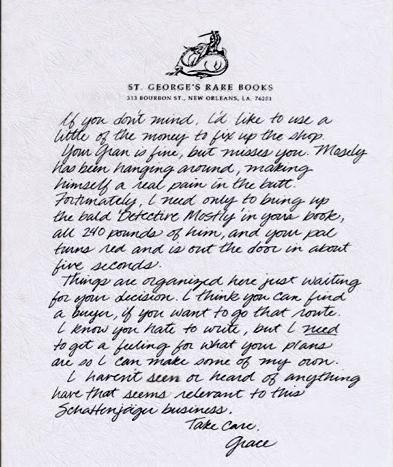 ST. GEORGE'S RARE BOOKS
313 BOURBON ST., NEW ORLEANS, LA. 76231
If you don't mind, I'd like to use a
little of the money to fix up the shop.
Your Gran is fine, but misses you. Mosely
has been hanging around, making
himself a real pain in the butt.
Fortunately, I need only to bring up
the bald Detective Mostly in your book,
all 240 pounds of him, and your pal
turns red and is out the door in about
five seconds.
Things are organized here just waiting
for your decision. I think you can find
a buyer, if you want to go that route.
I know you hate to write, but I need
to get a feeling for what your plans
are so I can make some of my own.
I haven't seen or heard of anything
here that seems relevant to this
Schattenjäger business.
Take care.
Grace